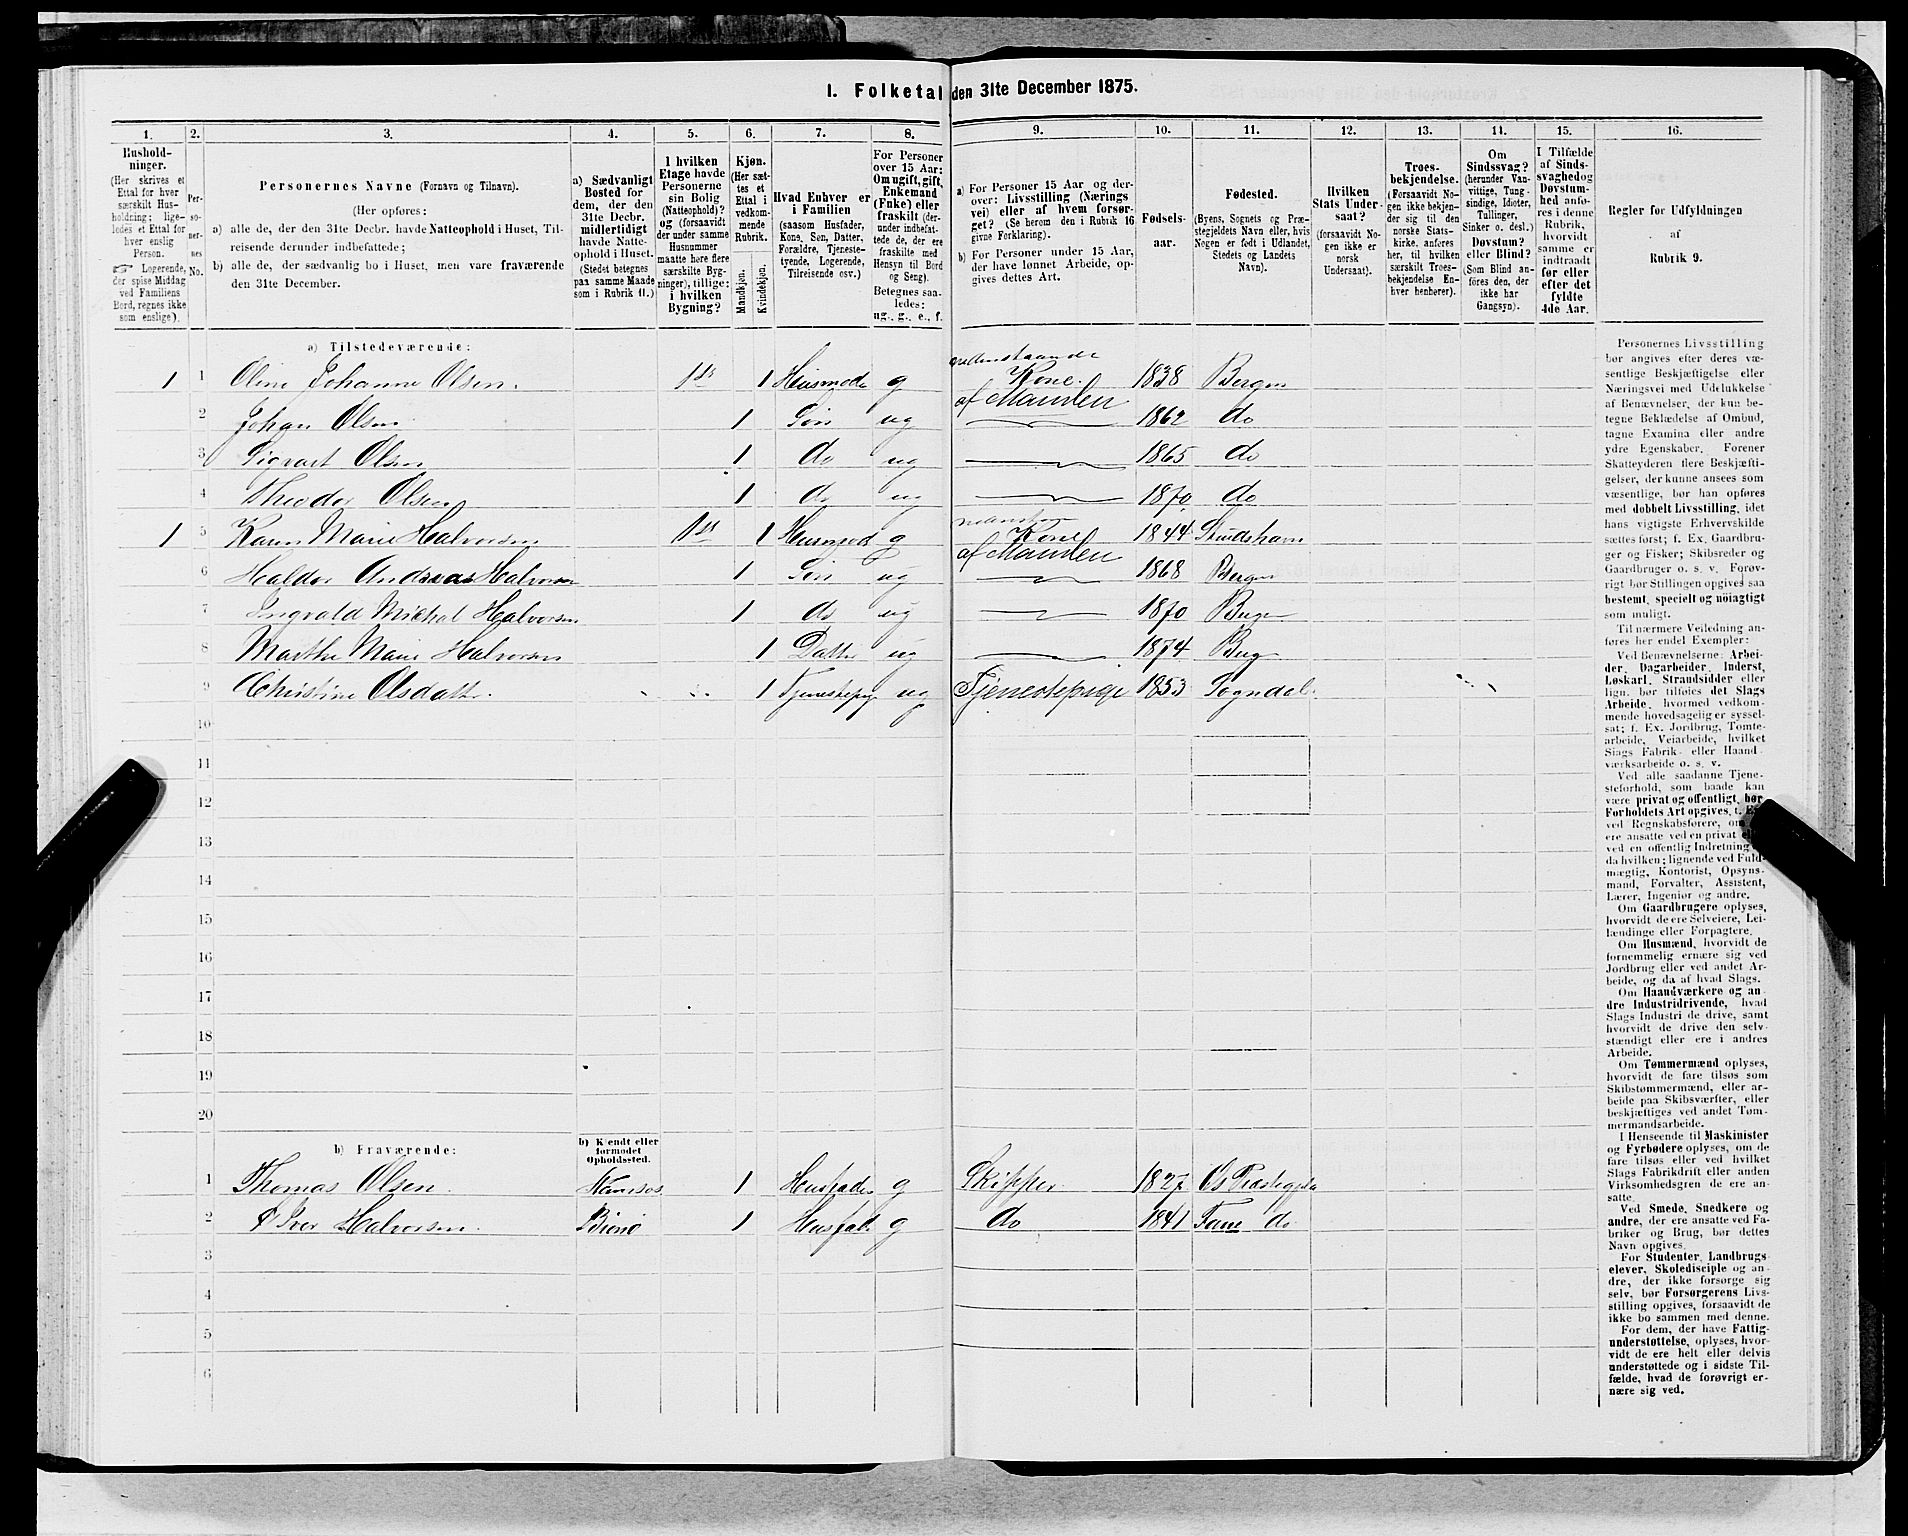 I. Folketal den 31te December 1875.
1. 2. 3. 4. 5. 6. 7. 8. 9. 10. 11. 12. 13. 14. 15. 16.
Hushold-
ninger.
(Her skrives et
Ettal for hver
særskilt Hus-
holdning; lige-
ledes et Ettal for
hver enslig
Person.
☞ Logerende,
der spise Middag
ved Familiens
Bord, regnes ikke
som enslige).
Per-
so-
ner-
nes
No.
Personernes Navne (Fornavn og Tilnavn).
(Her opføres:
a) alle de, der den 31te Decbr. havde Natteophold i Huset, Til-
reisende derunder indbefattede;
b) alle de, der sædvanlig bo i Huset, men vare fraværende
den 31te December.
a) Sædvanligt
Bosted for
dem, der den
31te Decbr.
midlertidigt
havde Natte-
ophold i Huset.
(Stedet betegnes
paa samme Maade
som i Rubrik 11.)
I hvilken
Etage havde
Personerne
sin Bolig
(Natteophold)?
og (forsaavidt
der under samme
Husnummer
maatte høre flere
særskilte Byg-
ninger), tillige:
i hvilken
Bygning?
Kjøn.
(Her sæt-
tes et
Ettal i
vedkom-
mende
Rubrik.
Mandkjøn.
Kvindekjøn.
Hvad Enhver er
i Familien
(saasom Husfader,
Kone, Søn, Datter,
Forældre, Tjeneste-
tyende, Logerende,
Tilreisende osv.)
For Personer
over 15 Aar:
Om ugift, gift,
Enkemand
(Enke) eller
fraskilt (der-
under indbefat-
tede de, der ere
fraskilte med
Hensyn til Bord
og Seng).
Betegnes saa-
ledes:
ug., g., e., f.
a) For Personer 15 Aar og der-
over: Livsstilling (Nærings
vei) eller af hvem forsør-
get? (Se herom den i Rubrik 16
givne Forklaring).
b) For Personer under 15 Aar,
der have lønnet Arbeide, op-
gives dettes Art.
Fødsels-
aar.
Fødested.
(Byens, Sognets og Præ-
stegjeldets Navn eller, hvis
Nogen er født i Udlandet,
Stedets og Landets
Navn).
Hvilken
Stats Under-
saat?
(forsaavidt No-
gen ikke er
norsk
Undersaat).
Troes-
bekjendelse.
(Forsaavidt No-
gen ikke bekjen-
der sig til den
norske Stats-
kirke, anføres
her, til hvilken
særskilt Troes-
bekjendelse En-
hver henhører).
Om
Sindssvag?
(herunder Van-
vittige, Tung-
sindige, Idioter,
Tullinger,
Sinker o. desl.)
Døvstum?
eller Blind?
(Som Blind an-
føres den, der
ikke har
Gangsyn).
I Tilfælde
af Sinds-
svaghed og
Døvstum-
hed anfø-
res i denne
Rubrik,
hvorvidt
samme er
indtraadt
før eller
efter det
fyldte
4de Aar.
Regler for Udfyldningen
af
Rubrik 9.
a) Tilstedeværende:
1 1 Oline Johanne Olsen. 1ste 1 Husmoder g nedenstaaende Kone. af Manden 1838 Bergen
2 Johan Olsen 1 Søn ug 1862 do
3 Sigvart Olsen 1 do ug 1865 do
4 Theodor Olsen 1 do ug 1870 do
1 5 Karen Marie Halvorsen 1ste 1 Husmod g Kone af Manden 1844
6 Haldor Andreas Halvorsen 1 Søn ug 1868 Bergen
7 Ingvald Michal Halvorsen 1 do ug 1870 Bergen
8 Marthe Marie Halvorsen 1 Datter ug 1874 Bergen
9 Christine Olsdatter. 1 Tjenestepige ug Tjenestepige 1853 Sogndal
10
11
12
13
14
15
16
17
18
19
20
b) Fraværende:
b) Kjendt eller
formodet
Opholdssted.
1 Thomas Olsen. Namsos 1 Husfader g Skipper 1827 Os Præstegjeld
2 Iver Halvorsen. 1 Husfad. g do 1841 Fane do
3
4
5
6
Personernes Livsstilling
bør angives efter deres væ-
sentlige Beskjæftigelse eller
Næringsvei med Udelukkelse
af Benævnelser, der kun be-
tegne Beklædelse af Ombud,
tagne Examina eller andre
ydre Egenskaber. Forener
Skatteyderen flere Beskjæfti-
gelser, der kunne ansees som
væsentlige, bør han opføres
med dobbelt Livsstilling, idet
hans vigtigste Erhvervskilde
sættes først; f. Ex. Gaardbru-
ger og Fisker; Skibsreder og
Gaardbruger o. s. v. Forøv-
rigt bør Stillingen opgives saa
bestemt, specielt og nøiagtigt
som muligt.
Til nærmere Veiledning an-
føres her endel Exempler:
Ved Benævnelserne: Arbei-
der, Dagarbeider, Inderst,
Løskarl, Strandsidder eller
lign. bør tilføies det Slags
Arbeide, hvormed vedkom-
mende hovedsagelig er syssel-
sat; f. Ex. Jordbrug, Tomte-
arbeide, Veiarbeide, hvilket
Slags Fabrik- eller Haand-
værksarbeide o. s. v.
Ved alle saadanne Tjene-
steforhold, som baade kan
være privat og offentligt, bør
Forholdets Art opgives, t. Ex.
ved Regnskabsførere, om
ere ansatte ved en privat
ved en offentlig Indretning
da hvilken; lignende ved Fuld-
mægtig, Kontorist, Opsyns-
mand, Forvalter, Assistent,
Lærer, Ingeniør og andre.
Om Gaardbrugere oplyses,
hvorvidt de ere Selveiere, Lei-
lændinge eller Forpagtere.
Om Husmænd, hvorvidt de
fornemmelig ernære sig ved
Jordbrug eller ved andet Ar-
beide, og da af hvad Slags.
Om Haandværkere og an-
dre Industridrivende, hvad
Slags Industri de drive, samt
hvorvidt de drive den selv-
stændigt eller ere i andres
Arbeide.
Om Tømmermænd oplyses,
hvorvidt de fare tilsøs som
Skibstømmermænd, eller ar-
beide paa Skibsværfter, eller
beskjæftiges ved andet Tøm-
mermandsarbeide.
I Henseende til Maskinister
og Fyrbødere oplyses, om de
fare tilsøs eller ved hvilket
Slags Fabrikdrift eller anden
Virksomhedsgren de ere an-
satte.
Ved Smede, Snedkere og
andre, der ere ansatte ved Fa-
briker og Brug, bør dettes
Navn opgives.
For Studenter, Landbrugs-
elever, Skoledisciple og an-
dre, der ikke forsørge sig
selv, bør Forsørgerens Livs-
stilling opgives, forsaavidt de
ikke bo sammen med denne.
For dem, der have Fattig-
understøttelse, oplyses, hvor-
vidt de ere helt eller delvis
understøttede og i sidste Til-
fælde, hvad de forøvrigt er-
nære sig ved.